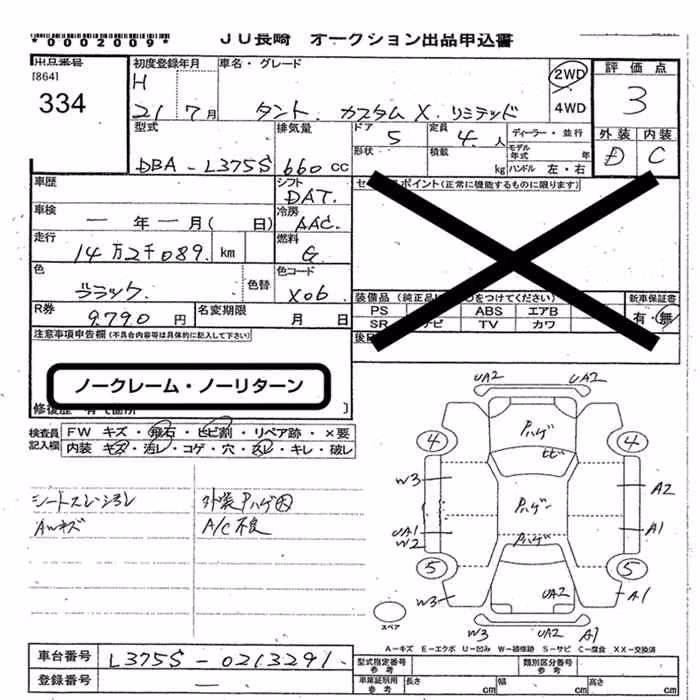 *0002009*
JU長崎　オークション出品申込書
出品番号
[864]
334
初度登録年月
H
21 7月
車名・グレード
タント カスタムX リミテッド
2WD
4WD
評価点
3
外装 内装
D C
型式
DBA-L375S
排気量
660 CC
ドア
5
定員
4人
形状
積載
kg
ディーラー・並行
モデル年式 年
ハンドル 左・右
車歴
シフト
DAT.
車検
一年一月( 日)
冷房
AAC.
走行
14万2千089. km
燃料
G
色
ブラック.
色替
色コード
X06
R券
9,790 円
名変期限
月 日
ポイント(正常に機能するものに限ります)
をつけてください)
装備品
PS ABS エアB
SR TV カワ
新車保証書
有・無
注意事項申告欄(不具合内容等は具体的に記入して下さい)
ノークレーム・ノーリターン
検査員記入欄
FW キズ・飛石・ヒビ割・リペア跡・×要
内装 キズ・汚レ・コゲ・穴・スレ・キレ・破レ
外装Pハゲ大
AWキズ A/C不良
UA2 UA2
Pハゲ
ヒビ
4 4
W3 A2
Pハゲ
UA1 A1
W2
Pハゲ
5 5
UA2
W3 A1
スペア
W3 UA2 A1
A-キズ E-エクボ U-凹み W-補修跡 S-サビ C-腐食 XX-交換済
車台番号
L375S-0213291.
登録番号
一
型式指定番号 参考
類別区分番号 参考
車業証別用 参考
長さ cm
幅 cm
高さ cm